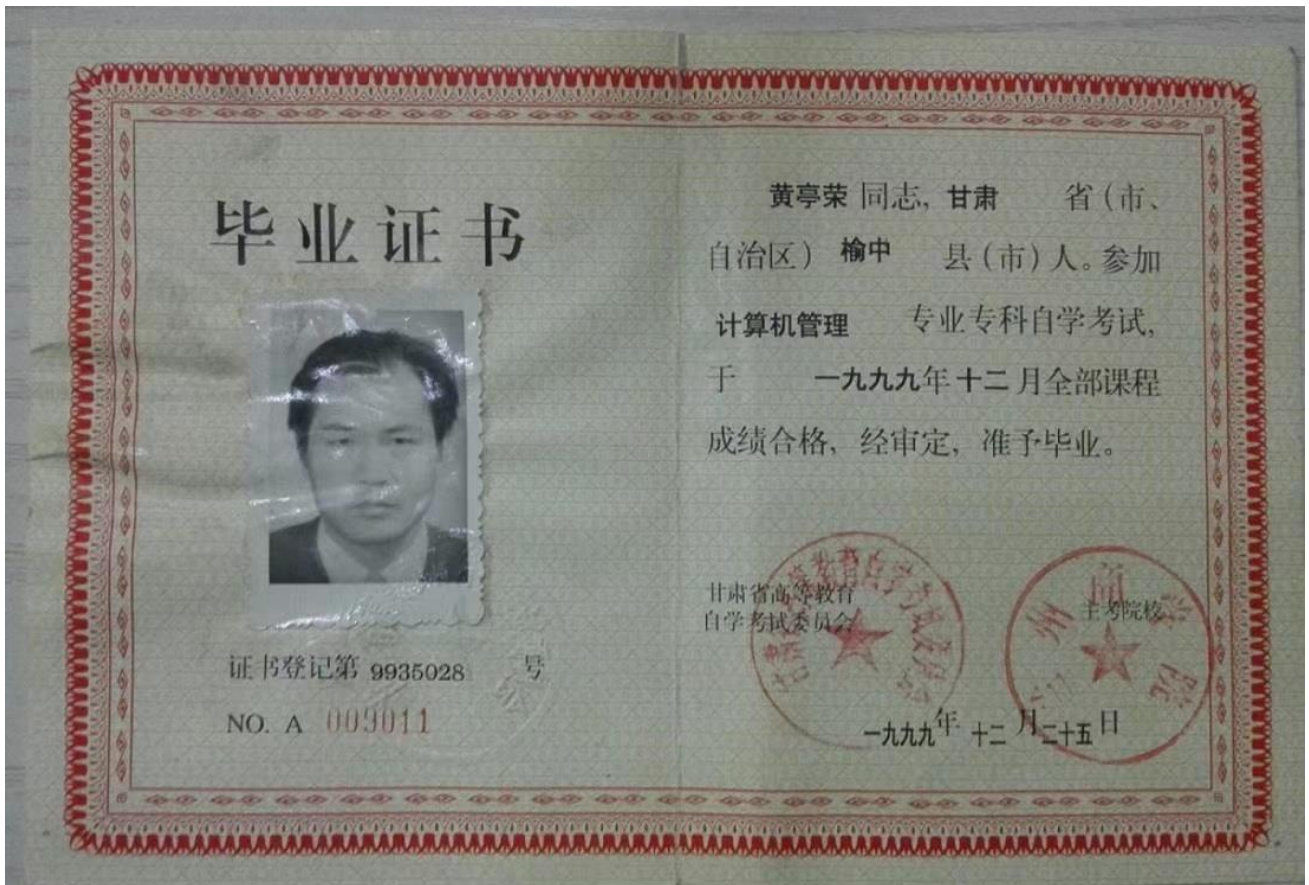 毕业证书
证书登记第 9935028 号
NO. A 009011
黄亭荣 同志, 甘肃 省(市、
自治区) 榆中 县(市)人。参加
计算机管理 专业专科自学考试,
于 一九九九年十二月全部课程
成绩合格, 经审定, 准予毕业。
甘肃省高等教育
自学考试委员会
主考院校
州商学院
一九九九年十二月二十五日